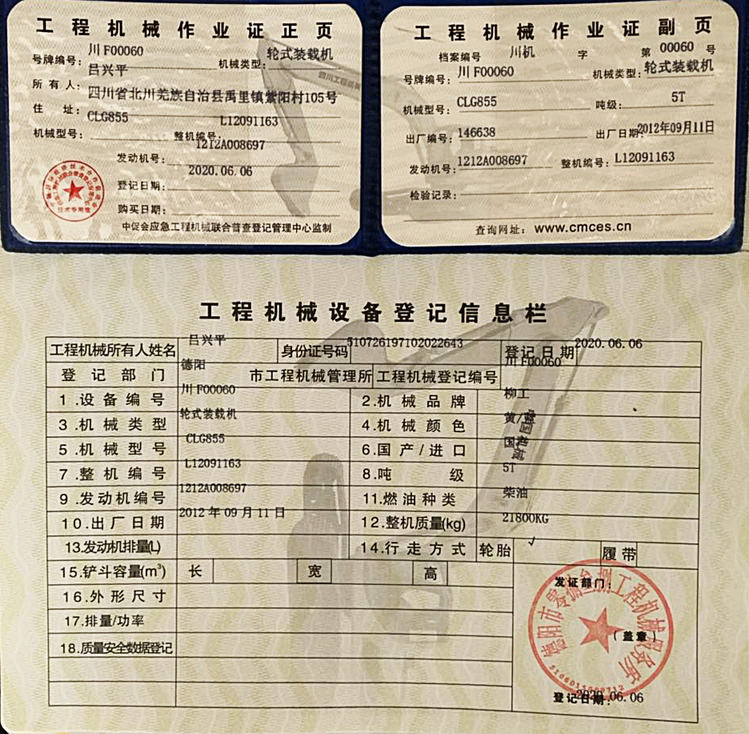 工程机械作业证正页
号牌编号：川 F00060 机械类型：轮式装载机
所有人：吕兴平
住址：四川省北川羌族自治县禹里镇紫阳村105号
机械型号：CLG855 整机编号：L12091163
发动机号：1212A008697
登记日期：2020.06.06
购买日期：
技术专用章
中促会应急工程机械联合普查登记管理中心监制
工程机械作业证副页
档案编号 川机 字 第 00060 号
号牌编号：川 F00060 机械类型：轮式装载机
机械型号：CLG855 吨级：5T
出厂编号：146638 出厂日期：2012年09月11日
发动机号：1212A008697 整机编号：L12091163
检验记录：
查询网址：www.cmces.cn
工程机械设备登记信息栏
工程机械所有人姓名 吕兴平 身份证号码 510726197102022643 登记日期 2020.06.06
登记部门 德阳 市工程机械管理所 工程机械登记编号 川 F00060
1.设备编号 川 F00060 2.机械品牌 柳工
3.机械类型 轮式装载机 4.机械颜色 黄/
5.机械型号 CLG855 6.国产/进口 国
7.整机编号 L12091163 8.吨级 5T
9.发动机编号 1212A008697 11.燃油种类 柴油
10.出厂日期 2012 年 09 月 11 日 12.整机质量(kg) 21800KG
13.发动机排量(L) 14.行走方式 轮胎 √ 履带
15.铲斗容量(m³) 长 宽 高
16.外形尺寸
17.排量/功率
18.质量安全数据登记
发证部门：
（盖章）
登记日期：2020.06.06